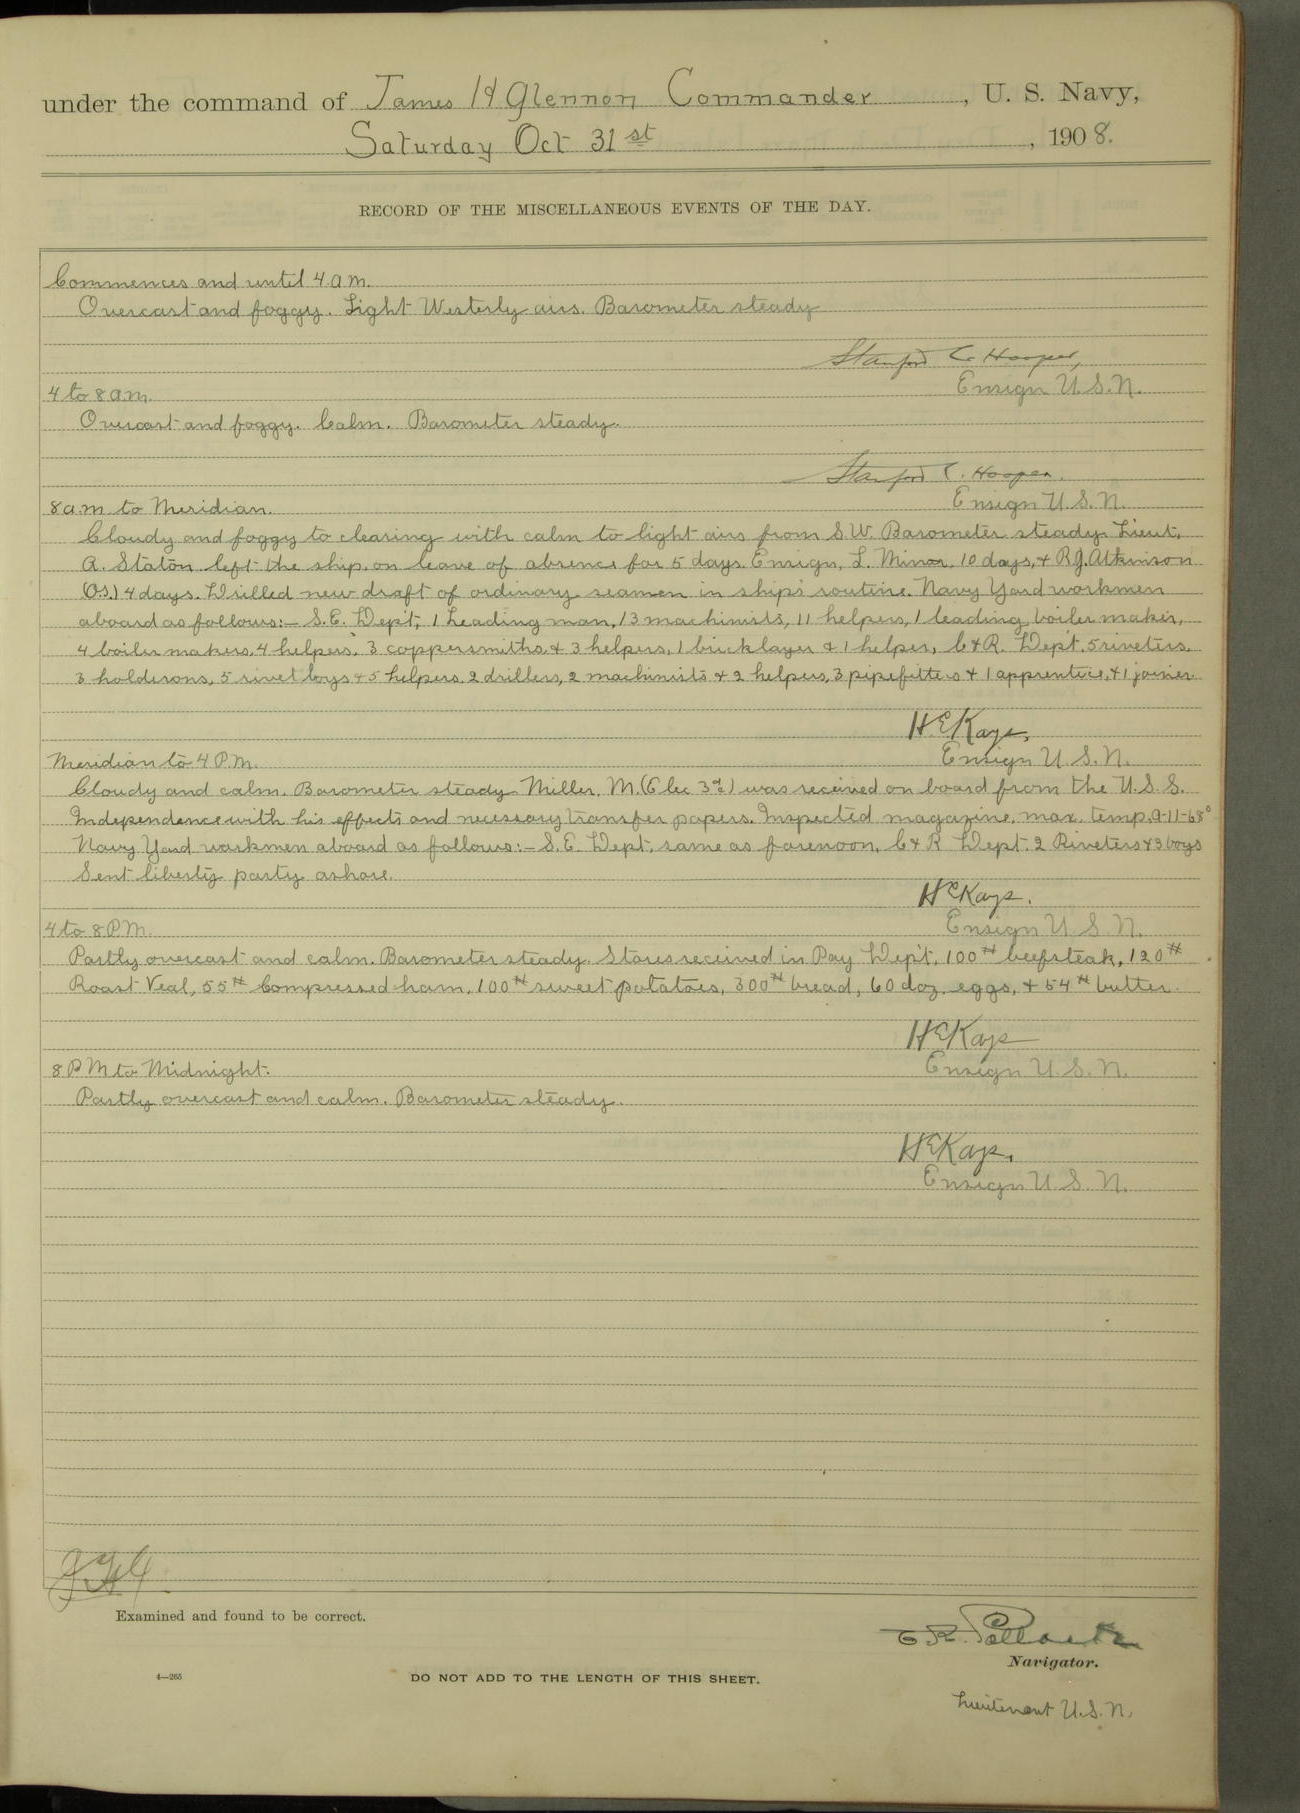 under the command of James H Glennon Commander, U. S. Navy,
Saturday Oct 31st, 1908.
RECORD OF THE MISCELLANEOUS EVENTS OF THE DAY.
Commences and until 4 a m.
Overcast and foggy. Light Westerly airs. Barometer steady
Stanford C Hooper,
Ensign U.S.N.
4 to 8 a m.
Overcast and foggy. Calm. Barometer steady.
Stanford C. Hooper.
Ensign U.S.N.
8 a.m to Meridian.
Cloudy and foggy to clearing with calm to light airs from S.W. Barometer steady. Lieut.
A. Staton left the ship on leave of absence for 5 days. Ensign, L. Minor 10 days, & R.J. Atkinson
(O.S.) 4 days. Drilled new draft of ordinary seamen in ship's routine. Navy Yard workmen
aboard as follows:- S.E. Dep't, 1 Leading man, 13 machinists, 11 helpers, 1 leading boiler maker,
4 boiler makers, 4 helpers, 3 coppersmiths & 3 helpers, 1 bricklayer & 1 helper, C & R. Dep't. 5 riveters.
3 holderons, 5 rivet boys & 5 helpers. 2 drillers, 2 machinists & 2 helpers, 3 pipefitters & 1 apprentice, & 1 joiner
H E Kays,
Ensign U.S.N.
Meridian to 4 P.M.
Cloudy and calm. Barometer steady. Miller, M. (Elec 3d) was received on board from the U.S.S.
Independence with his effects and necessary transfer papers. Inspected magazine, max. temp. 9-11-68°
Navy Yard workmen aboard as follows:- S.E. Dept. same as forenoon. C & R Dept. 2 Riveters & 3 boys
Sent liberty party ashore.
H E Kays.
Ensign U.S.N.
4 to 8 P.M.
Partly overcast and calm. Barometer steady. Stores received in Pay Dep't, 100# beefsteak, 120#
Roast Veal, 55# Compressed ham, 100# sweet potatoes, 300# bread, 60 doz. eggs, & 54# butter.
H E Kays
Ensign U.S.N.
8 P M to Midnight.
Partly overcast and calm. Barometer steady.
H E Kays.
Ensign U.S.N.
J H G
Examined and found to be correct.
E. R. Pollock
Navigator.
4—265
DO NOT ADD TO THE LENGTH OF THIS SHEET.
Lieutenant U.S.N.